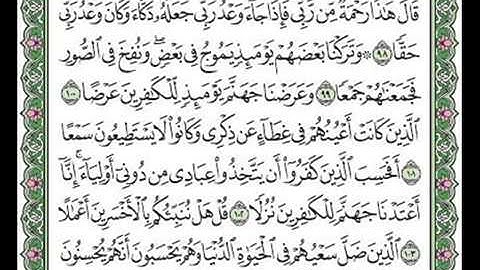 قَالَ هَٰذَا رَحْمَةٌ مِّن رَّبِّي فَإِذَا جَآءَ وَعْدُ رَبِّي جَعَلَهُۥ دَكَّآءَ وَكَانَ وَعْدُ رَبِّي
حَقًّا ٩٨ ۞ وَتَرَكْنَا بَعْضَهُمْ يَوْمَئِذٍ يَمُوجُ فِي بَعْضٍ وَنُفِخَ فِي ٱلصُّورِ
فَجَمَعْنَٰهُمْ جَمْعًا ٩٩ وَعَرَضْنَا جَهَنَّمَ يَوْمَئِذٍ لِّلْكَٰفِرِينَ عَرْضًا ١٠٠
ٱلَّذِينَ كَانَتْ أَعْيُنُهُمْ فِي غِطَآءٍ عَن ذِكْرِي وَكَانُوا۟ لَا يَسْتَطِيعُونَ سَمْعًا
١٠١ أَفَحَسِبَ ٱلَّذِينَ كَفَرُوٓا۟ أَن يَتَّخِذُوا۟ عِبَادِي مِن دُونِيٓ أَوْلِيَآءَ ۚ إِنَّآ
أَعْتَدْنَا جَهَنَّمَ لِلْكَٰفِرِينَ نُزُلًا ١٠٢ قُلْ هَلْ نُنَبِّئُكُم بِٱلْأَخْسَرِينَ أَعْمَٰلًا
١٠٣ ٱلَّذِينَ ضَلَّ سَعْيُهُمْ فِي ٱلْحَيَوٰةِ ٱلدُّنْيَا وَهُمْ يَحْسَبُونَ أَنَّهُمْ يُحْسِنُونَ